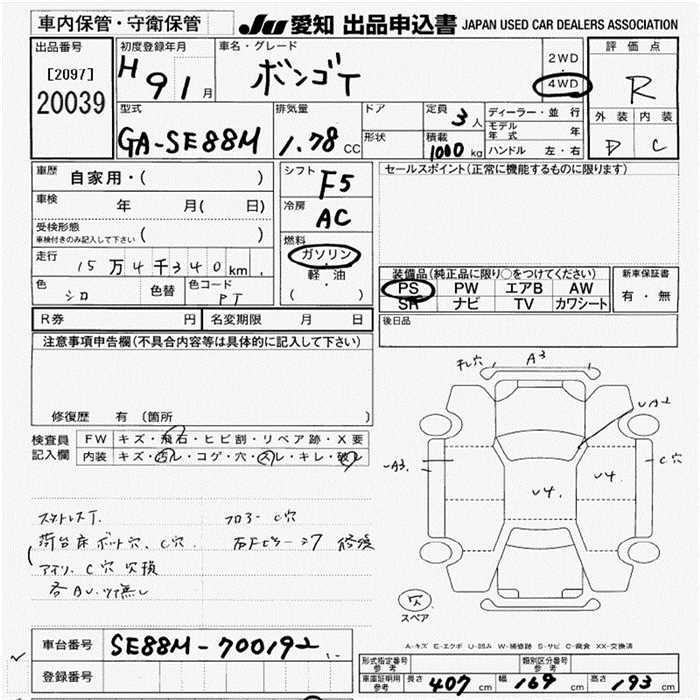 車内保管・守衛保管 JU 愛知 出品申込書 JAPAN USED CAR DEALERS ASSOCIATION
出品番号
[2097]
20039
初度登録年月
H 9 1 月
車名・グレード
ボンゴT
2WD
・
4WD
評価点
R
外装 内装
D C
型式
GA-SE88M
排気量
1.78 CC
ドア
形状
定員 3 人
積載 1000 kg
ディーラー・並行
モデル年式 年
ハンドル 左・右
車歴 自家用・( )
車検 年 月( 日)
受検形態 ( )
車検付きのみ記入して下さい
走行 15万4千340km
色 シロ
色替
色コード PT
シフト F5
冷房 AC
燃料
ガソリン
軽・油
( ・ )
セールスポイント(正常に機能するものに限ります)
装備品(純正品に限り○をつけてください)
PS PW エアB AW
SR ナビ TV カワシート
新車保証書
有・無
R券 円 名変期限 月 日
後日品
注意事項申告欄(不具合内容等は具体的に記入して下さい)
修復歴 有 〔箇所 〕
検査員 FW キズ・飛石・ヒビ割・リペア跡・X要
記入欄 内装 キズ・ヨゴレ・コゲ・穴・スレ・キレ・破レ
フロアー C穴
荷台床 ボルト穴、C穴
C穴
A3
UA2
UA3
U4
U4
C穴
欠
スペア
A-キズ E-エクボ U-凹み W-補修跡 S-サビ C-腐食 XX-交換済
車台番号 SE88M-700192
登録番号
型式指定番号 参考
類別区分番号 参考
車庫証明用 参考 長さ 407 cm 幅 169 cm 高さ 193 cm